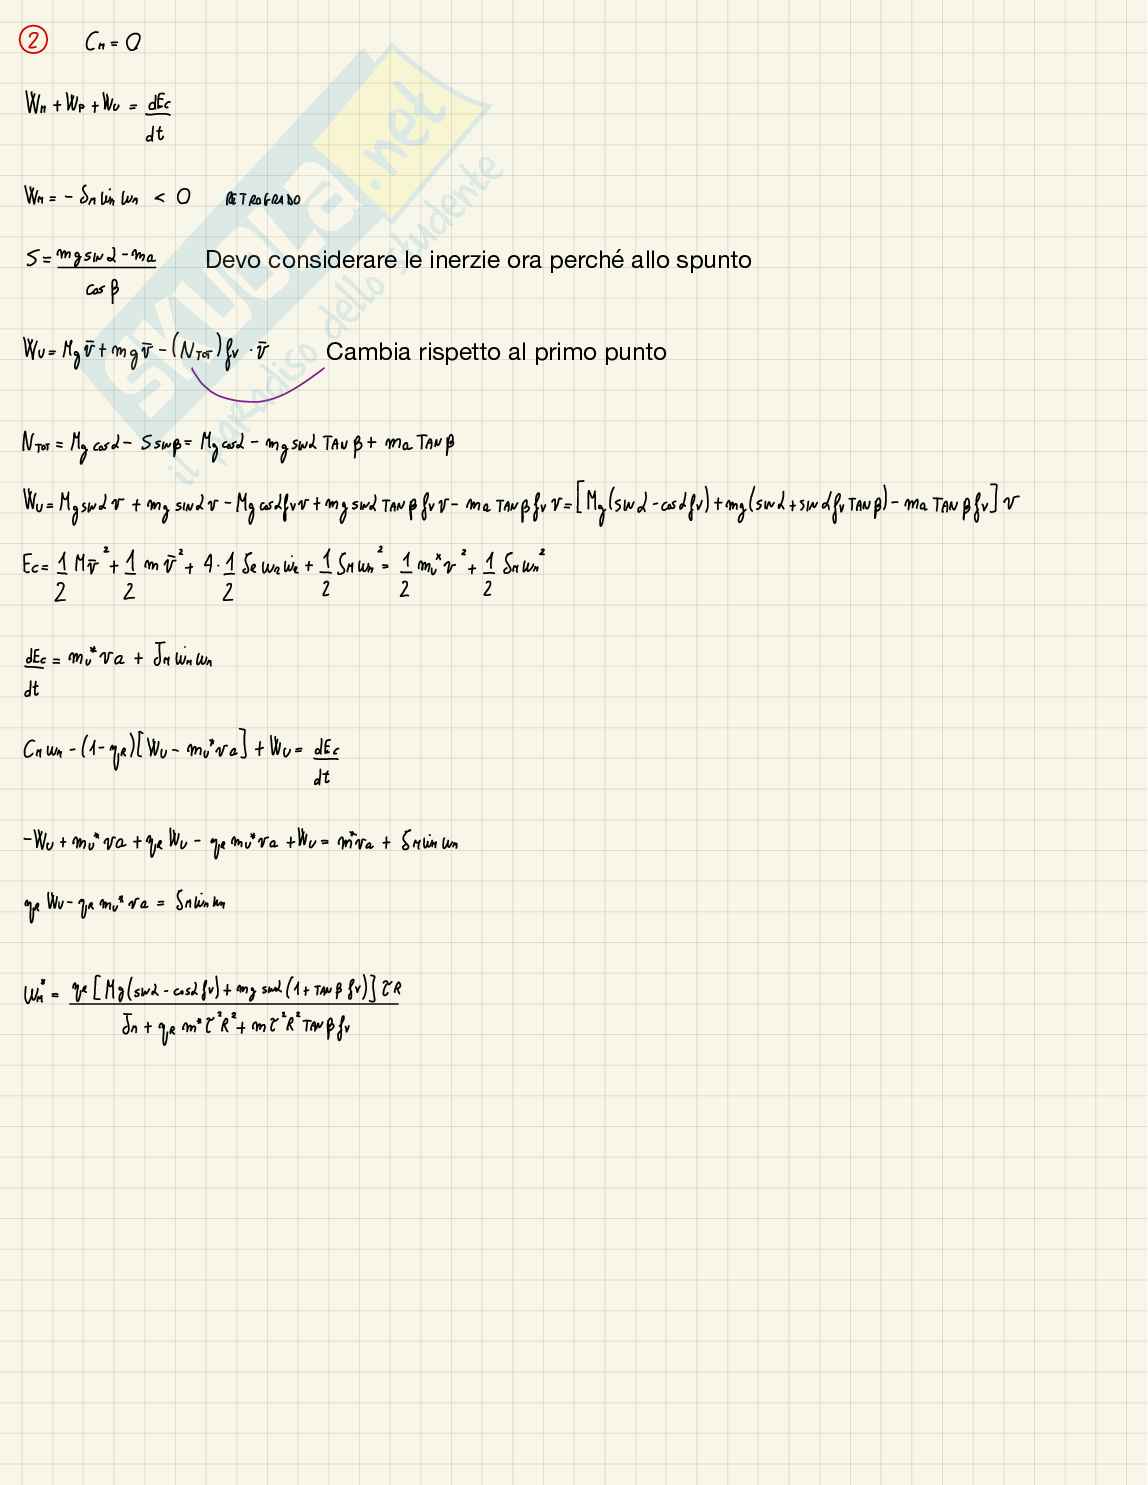 ② Cₘ = 0
Wₘ + Wₚ + Wᵤ = dEc/dt
Wₘ = - Jₘ ω̇ₘ ωₘ < 0 RETROGRADO
S = (mg sin α - ma)/cos β Devo considerare le inerzie ora perché allo spunto
Wᵤ = Mg v̄ + mg v̄ - (N_TOT) fᵥ · v̄ Cambia rispetto al primo punto
N_TOT = Mg cos α - S sin β = Mg cos α - mg sin α TAN β + ma TAN β
Wᵤ = Mg sin α v + mg sin α v - Mg cos α fᵥ v + mg sin α TAN β fᵥ v - ma TAN β fᵥ v = [Mg(sin α - cos α fᵥ) + mg(sin α + sin α fᵥ TAN β) - ma TAN β fᵥ] v
Ec = 1/2 M v̄² + 1/2 m v̄² + 4 · 1/2 J_R ω_R ω̇_R + 1/2 Jₘ ωₘ² = 1/2 mᵤ* v² + 1/2 Jₘ ωₘ²
dEc/dt = mᵤ* v a + Jₘ ω̇ₘ ωₘ
Cₘ ωₘ - (1 - η_R)[Wᵤ - mᵤ* v a] + Wᵤ = dEc/dt
- Wᵤ + mᵤ* v a + η_R Wᵤ - η_R mᵤ* v a + Wᵤ = m* v a + Jₘ ω̇ₘ ωₘ
η_R Wᵤ - η_R mᵤ* v a = Jₘ ω̇ₘ ωₘ
ωₘ* = η_R [Mg(sin α - cos α fᵥ) + mg sin α (1 + TAN β fᵥ)] τR / (Jₘ + η_R m* τ² R² + m τ² R² TAN β fᵥ)
SKUOLA.net
il paradiso dello studente